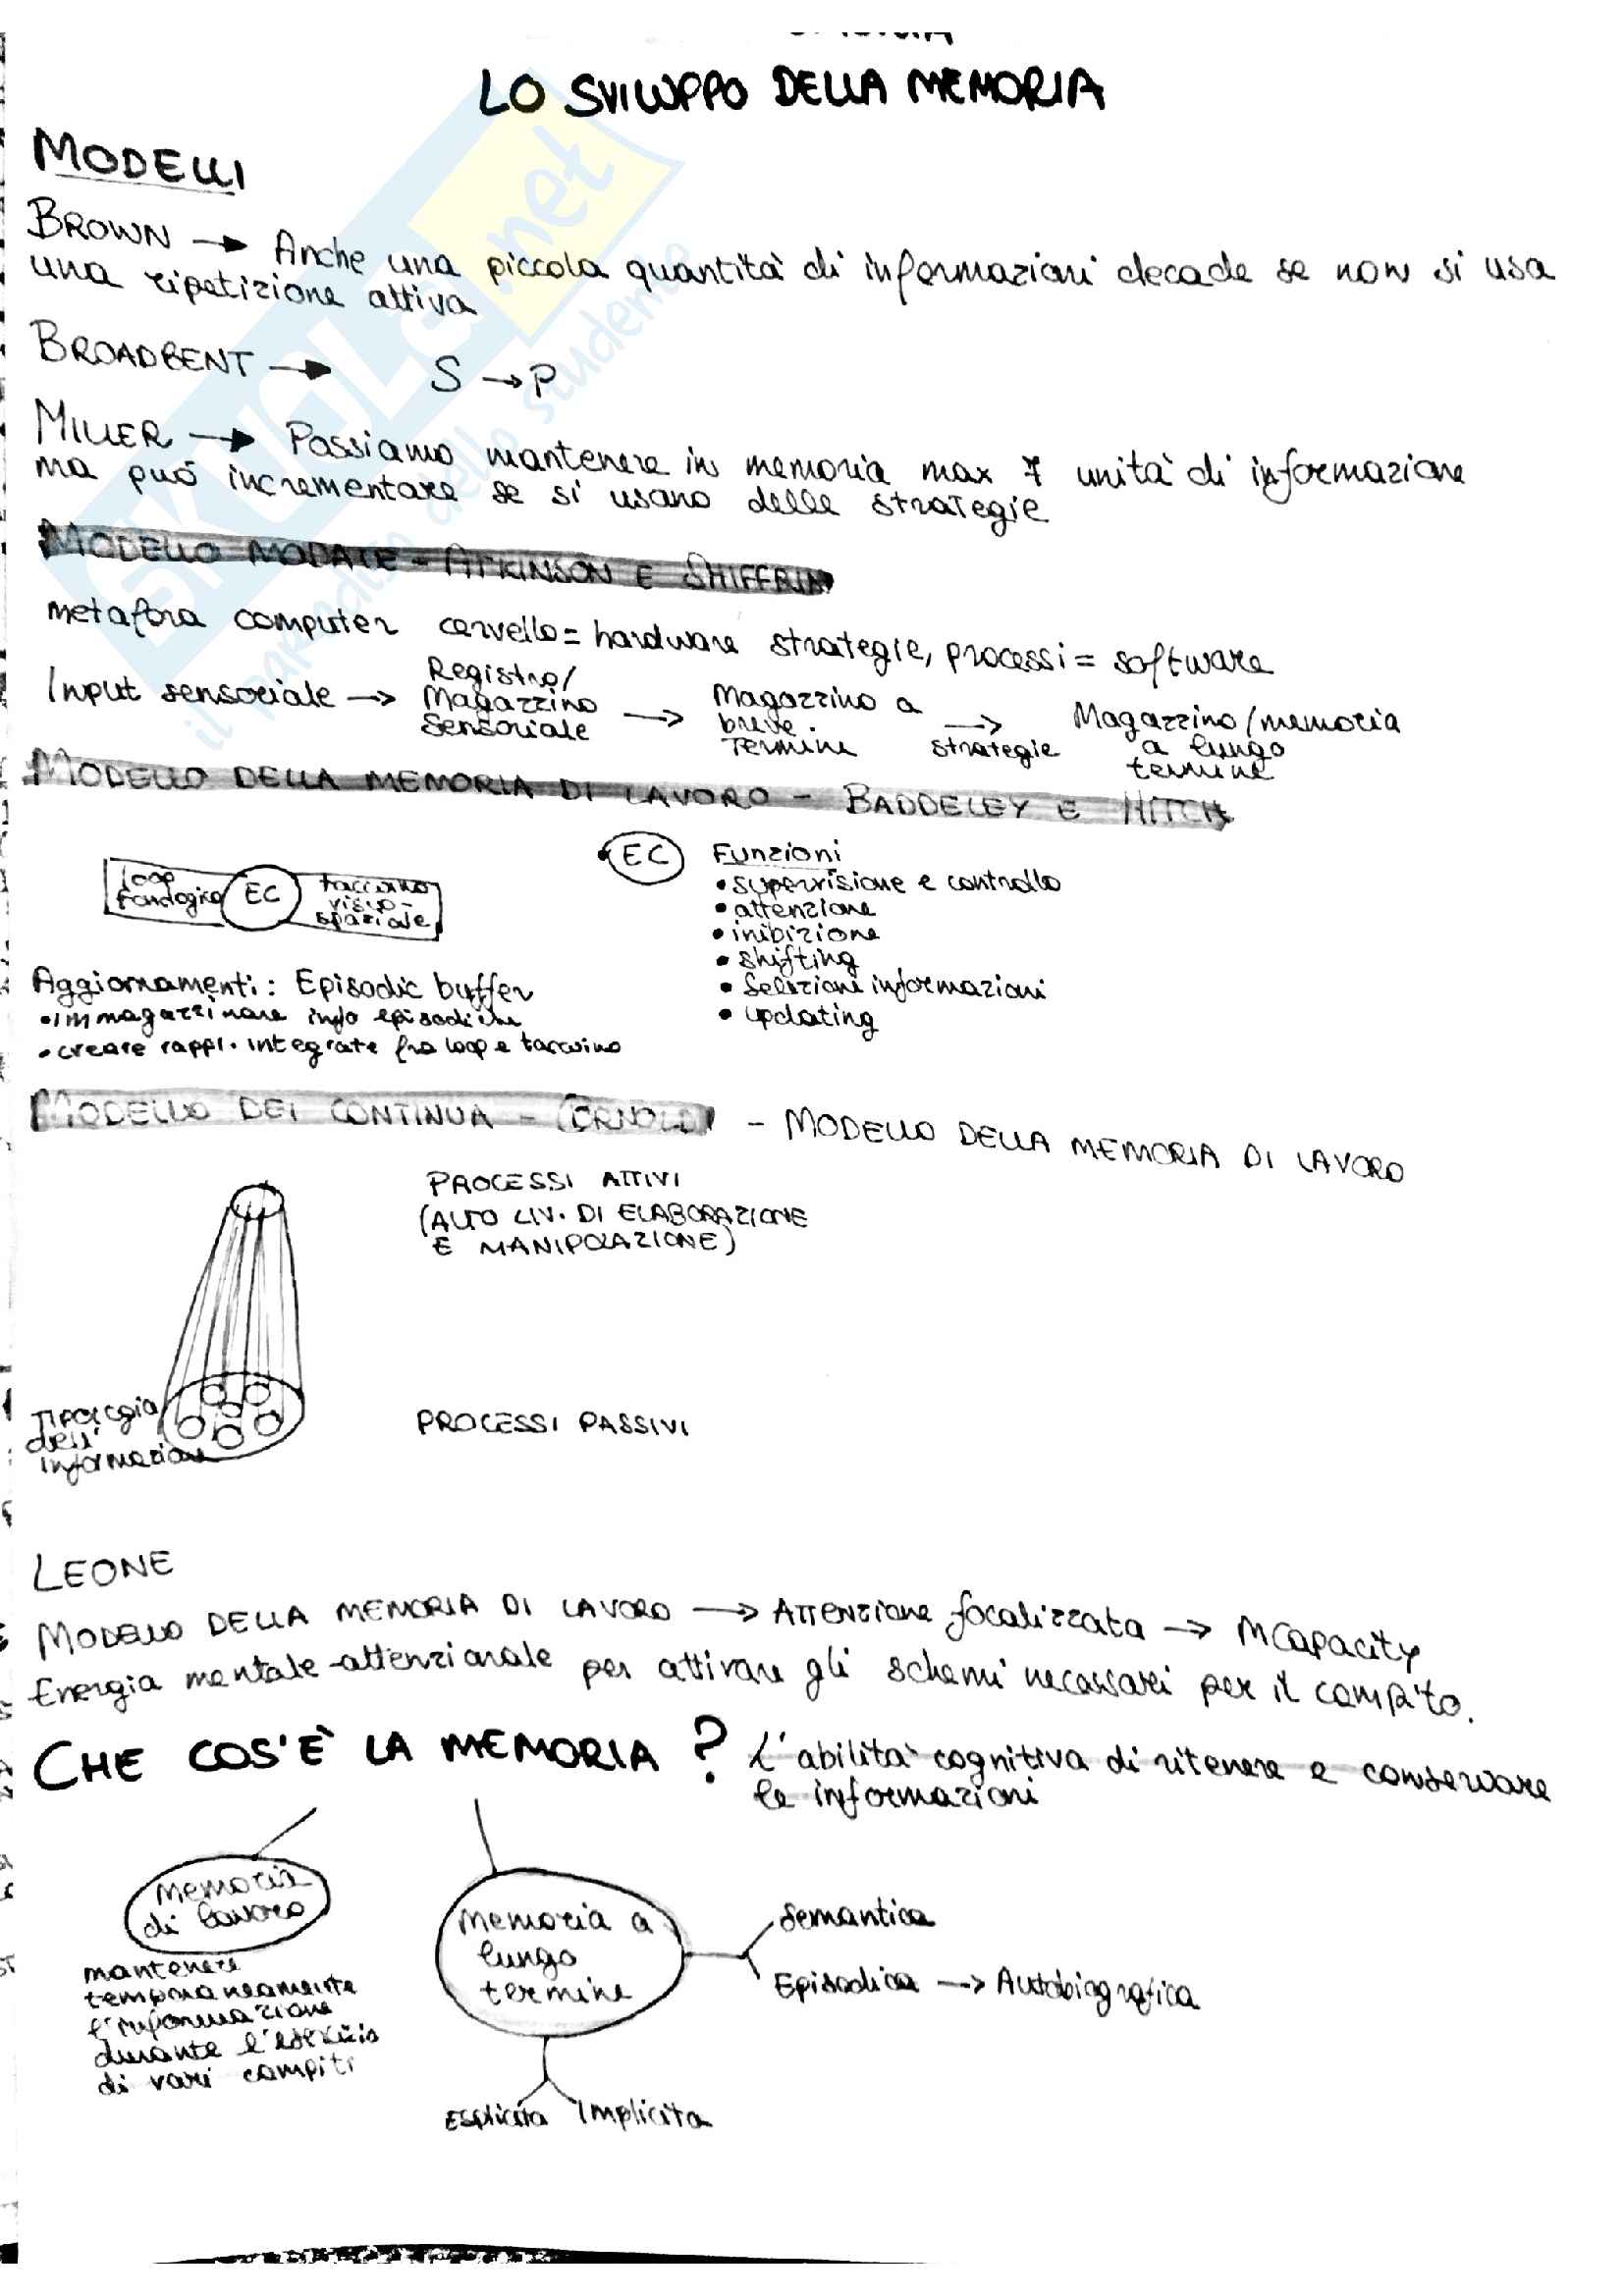 LO SVILUPPO DELLA MEMORIA
MODELLI
BROWN → Anche una piccola quantità di informazioni decade se non si usa
una ripetizione attiva
BROADBENT → S → P
MILLER → Possiamo mantenere in memoria max 7 unità di informazione
ma può incrementare se si usano delle strategie
MODELLO MODALE - ATKINSON E SHIFFRIN
metafora computer cervello = hardware strategie, processi = software
Input sensoriale → Registro/
Magazzino
Sensoriale → Magazzino a
breve
Termine → strategie Magazzino/memoria
a lungo
termine
MODELLO DELLA MEMORIA DI LAVORO - BADDELEY E HITCH
loop
fonologico
EC
taccuino
visuo-
spaziale
• EC Funzioni
• supervisione e controllo
• attenzione
• inibizione
• shifting
• Selezioni informazioni
• updating
Aggiornamenti: Episodic buffer
• immagazzinare info episodiche
• creare rappr. integrate fra loop e taccuino
MODELLO DEI CONTINUA - CORNOLDI - MODELLO DELLA MEMORIA DI LAVORO
PROCESSI ATTIVI
(ALTO LIV. DI ELABORAZIONE
E MANIPOLAZIONE)
TIPOLOGIA
dell'
informazione
PROCESSI PASSIVI
LEONE
MODELLO DELLA MEMORIA DI LAVORO → Attenzione focalizzata → MCapacity
Energia mentale-attenzionale per attivare gli schemi necessari per il compito.
CHE COS'È LA MEMORIA? L'abilità cognitiva di ritenere e conservare
le informazioni
Memoria
di lavoro
mantenere
temporaneamente
l'informazione
durante l'esercizio
di vari compiti
Memoria a
lungo
termine
Semantica
Episodica → Autobiografica
Esplicita Implicita
SKUOLA.net
il paradiso dello studente